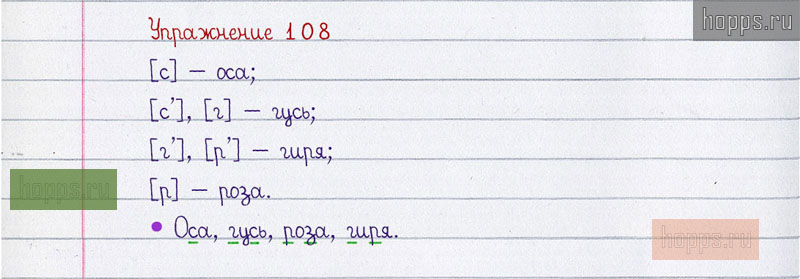 hopps.ru
Упражнение 108
[с] – оса;
[с'], [г] – гусь;
[г'], [р'] – гиря;
hopps.ru
[р] – роза.
• Оса, гусь, роза, гиря.
hopps.ru